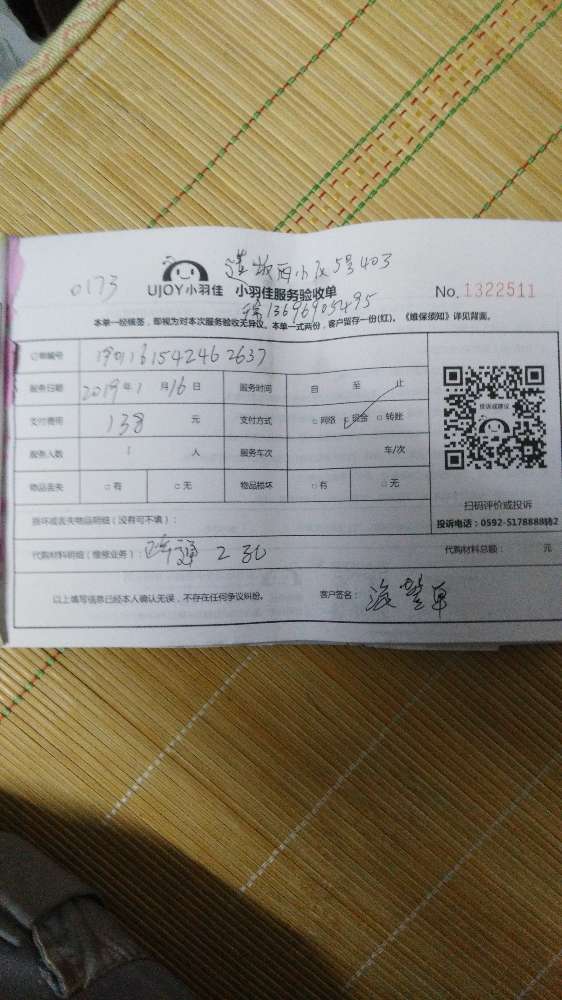 0173 UJOY小羽佳 小羽佳服务验收单 5号403
No. 1322511
13696905495
本单一经候签，即视为对本次服务验收无异议。本单一式两份，客户留存一份(红)。《维保须知》详见背面。
订单编号 1901161542462637
服务日期 2019年1月16日 服务时间 自 至 止
支付费用 138 元 支付方式 □网络 □现金 □转账
服务人数 1 人 服务车次 车/次
物品丢失 □有 □无 物品损坏 □有 □无
投诉或建议
扫码评价或投诉
投诉电话：0592-5178888转2
损坏或丢失物品明细（没有可不填）：
代购材料明细（维修业务）： 疏通2孔 代购材料总额： 元
以上填写信息已经本人确认无误，不存在任何争议纠纷。 客户签名：